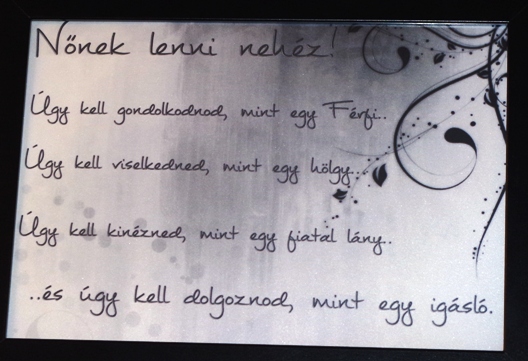 Nőnek lenni nehéz!
Úgy kell gondolkodnod, mint egy Férfi..
Úgy kell viselkedned, mint egy hölgy...
Úgy kell kinézned, mint egy fiatal lány..
..és úgy kell dolgoznod, mint egy igásló.